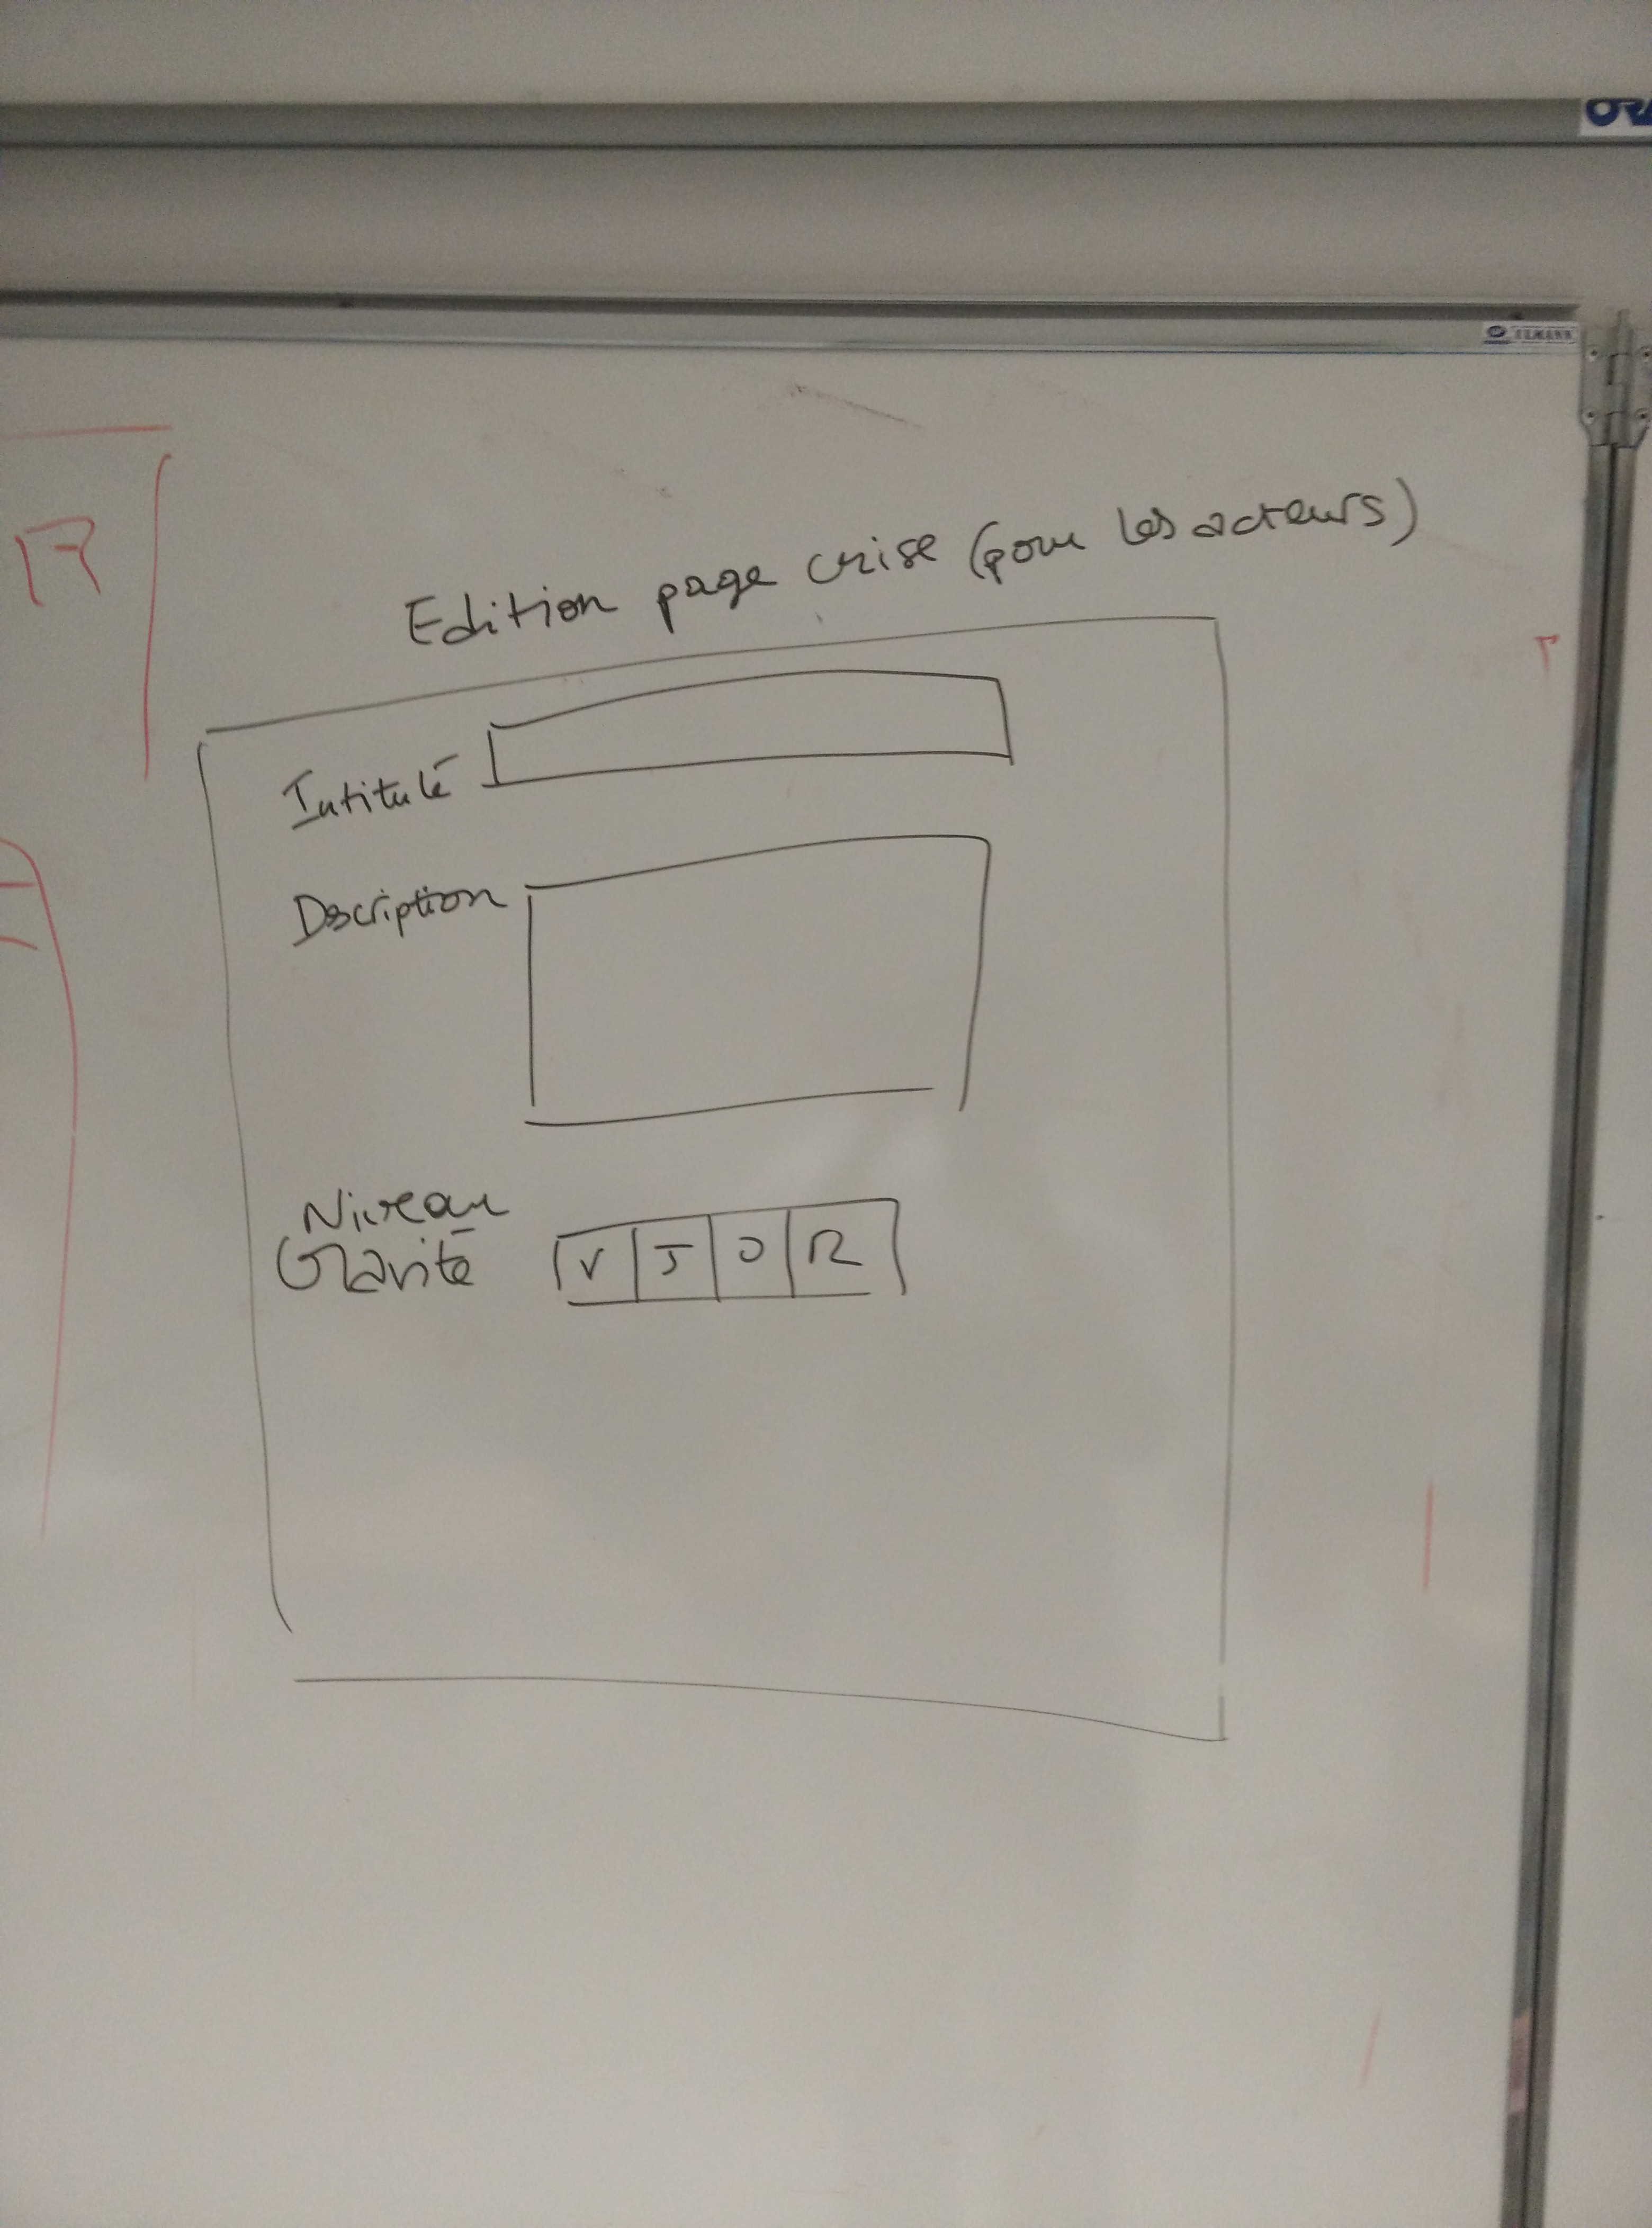 Edition page crise (pour les acteurs)
Intitulé
Description
Niveau
Gravité
V J O R
R